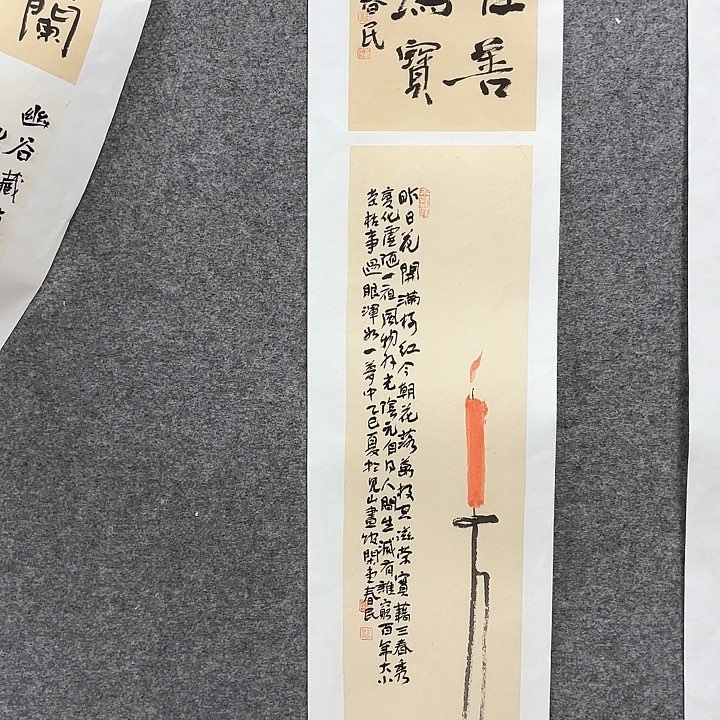 善
寶
春民
昨日花開滿樹紅今朝花落萬枝空滋榮實藉三春秀
變化虛隨一夜風物外光陰元自得人間生滅有誰窮百年大小
榮枯事過眼渾如一夢中乙巳夏於見山畫館閑堂春民
蘭
幽谷藏